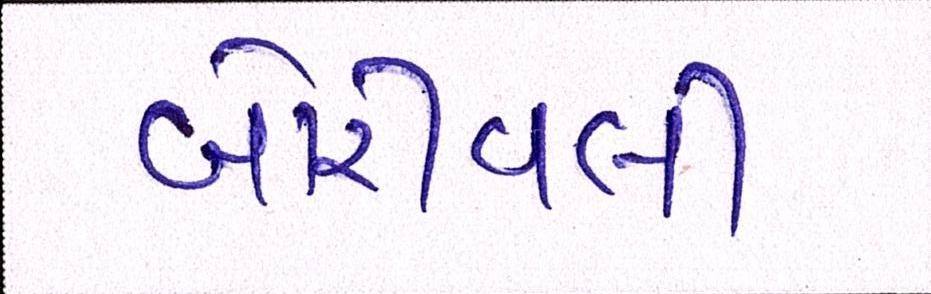 બોરીવલી